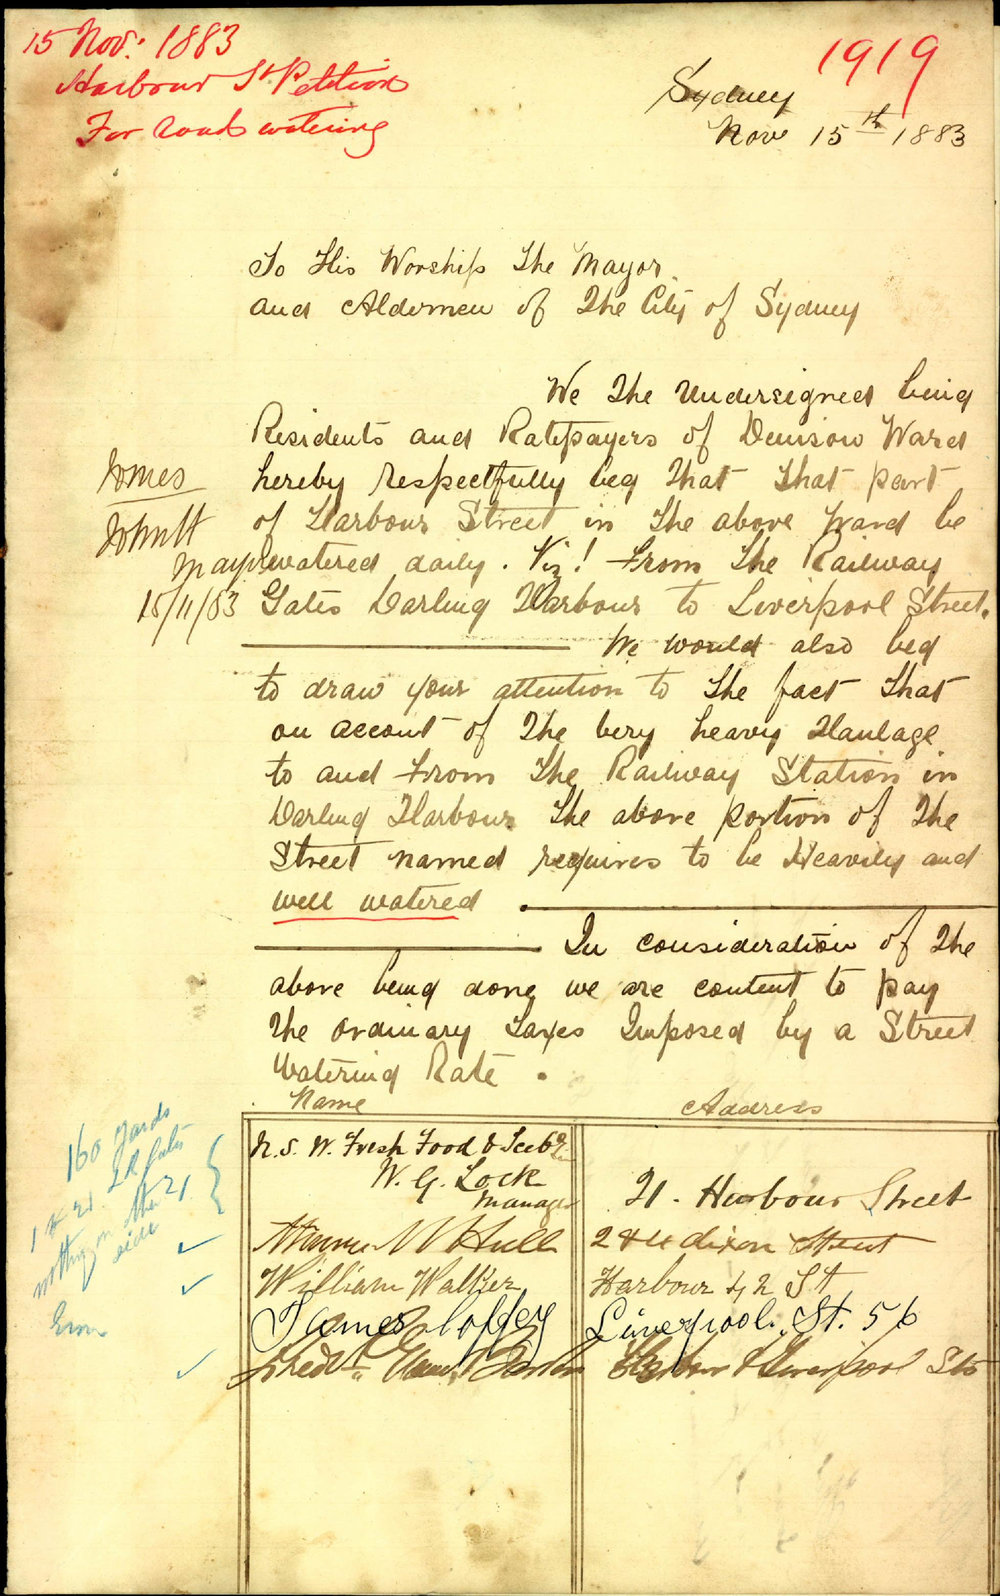 15 Nov: 1883
Harbour St Petition
For road watering
1919
Sydney
Nov 15th 1883
To His Worship The Mayor
and Aldermen of The City of Sydney
We The Undersigned being
Residents and Ratepayers of Denison Ward
hereby respectfully beg That That part
of Harbour Street in The above Ward be
watered daily. Viz! From The Railway
Gates Darling Harbour to Liverpool Street.
We would also beg
to draw your attention to The fact That
on account of The very heavy Haulage
to and From The Railway Station in
Darling Harbour The above portion of The
Street named requires to be Heavily and
well watered.
In consideration of The
above being done we are content to pay
The ordinary Taxes Imposed by a Street
Watering Rate.
Jones
John H
Mayor
15/11/83
Name Address
N. S. W. Fresh Food & Ice Co
W. G. Lock
Manager
21 - Harbour Street
Hull
2 & 4 dixon Street
William Walker
Harbour 42 St
James Coffey
Liverpool. St. 56
Harbour & Liverpool Sts
160 yards
nothing on the
side